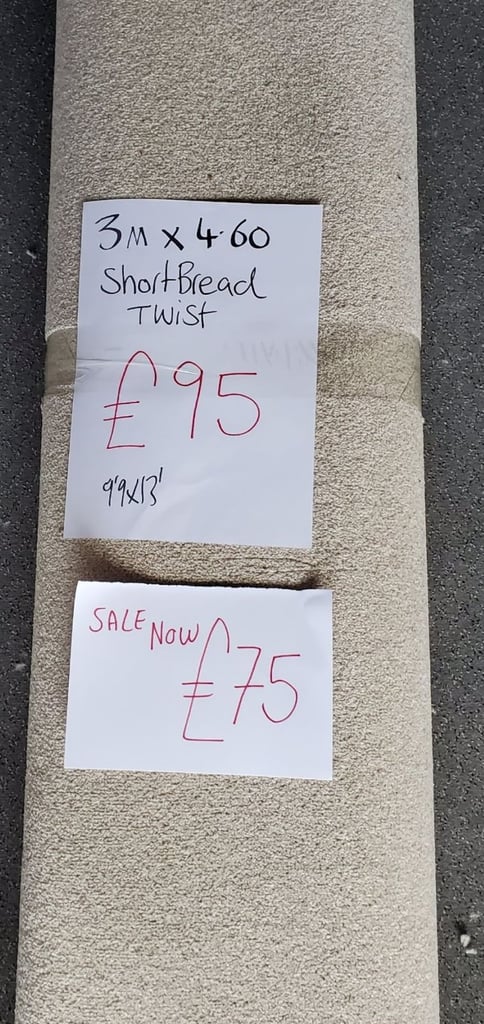 3M X 4.60
ShortBread
TWIST
£95
9'9X13'
SALE NOW
£75